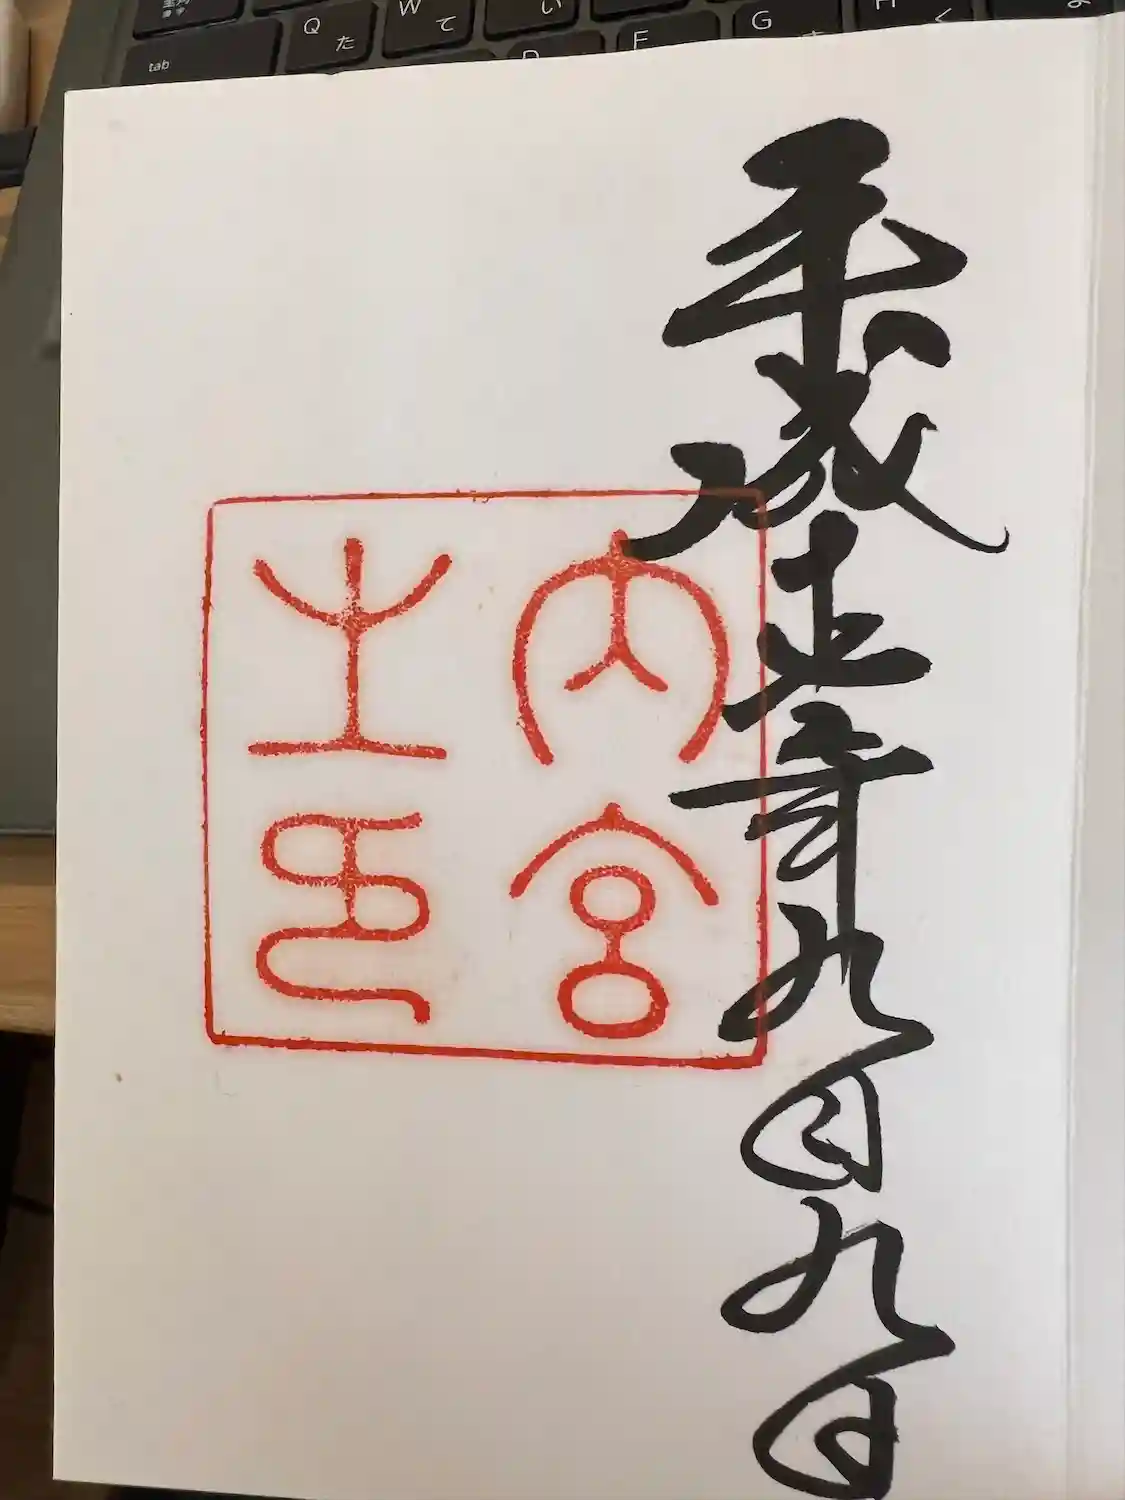 tab
Q た
W て
い
G
く
平成
年九月九日
内宮
之印